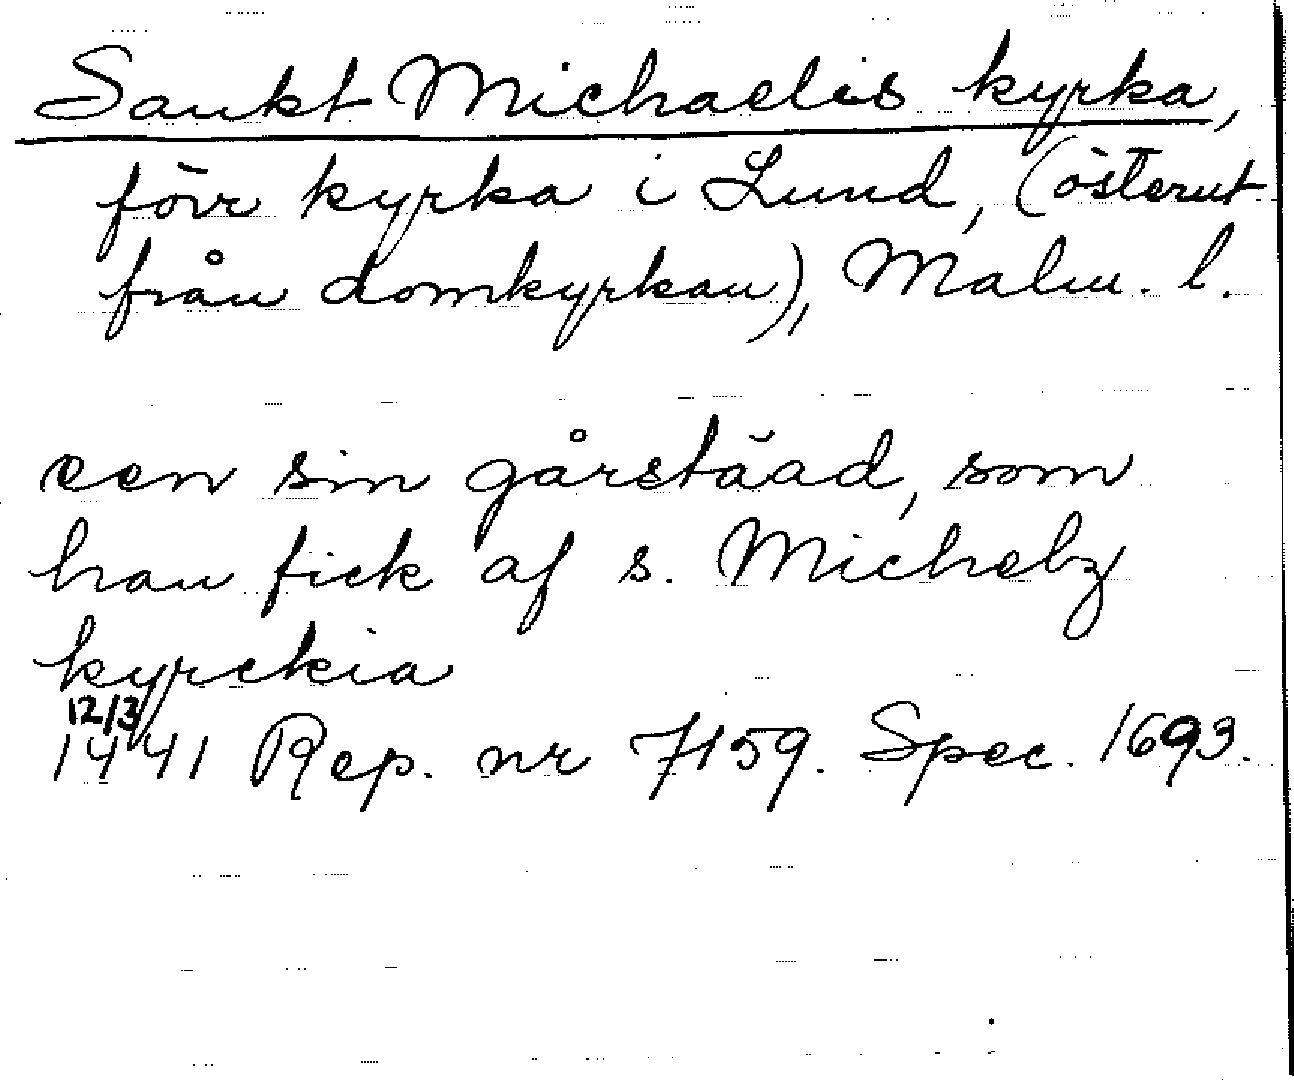 Sankt Michaelis kyrka,
förr kyrka i Lund, (österut
från domkyrkan), Malm. l.
een sin gårstäad, som
han fick af s. Michelz
kyrckia
12/3
1441 Rep. nr 7159. Spec. 1693.